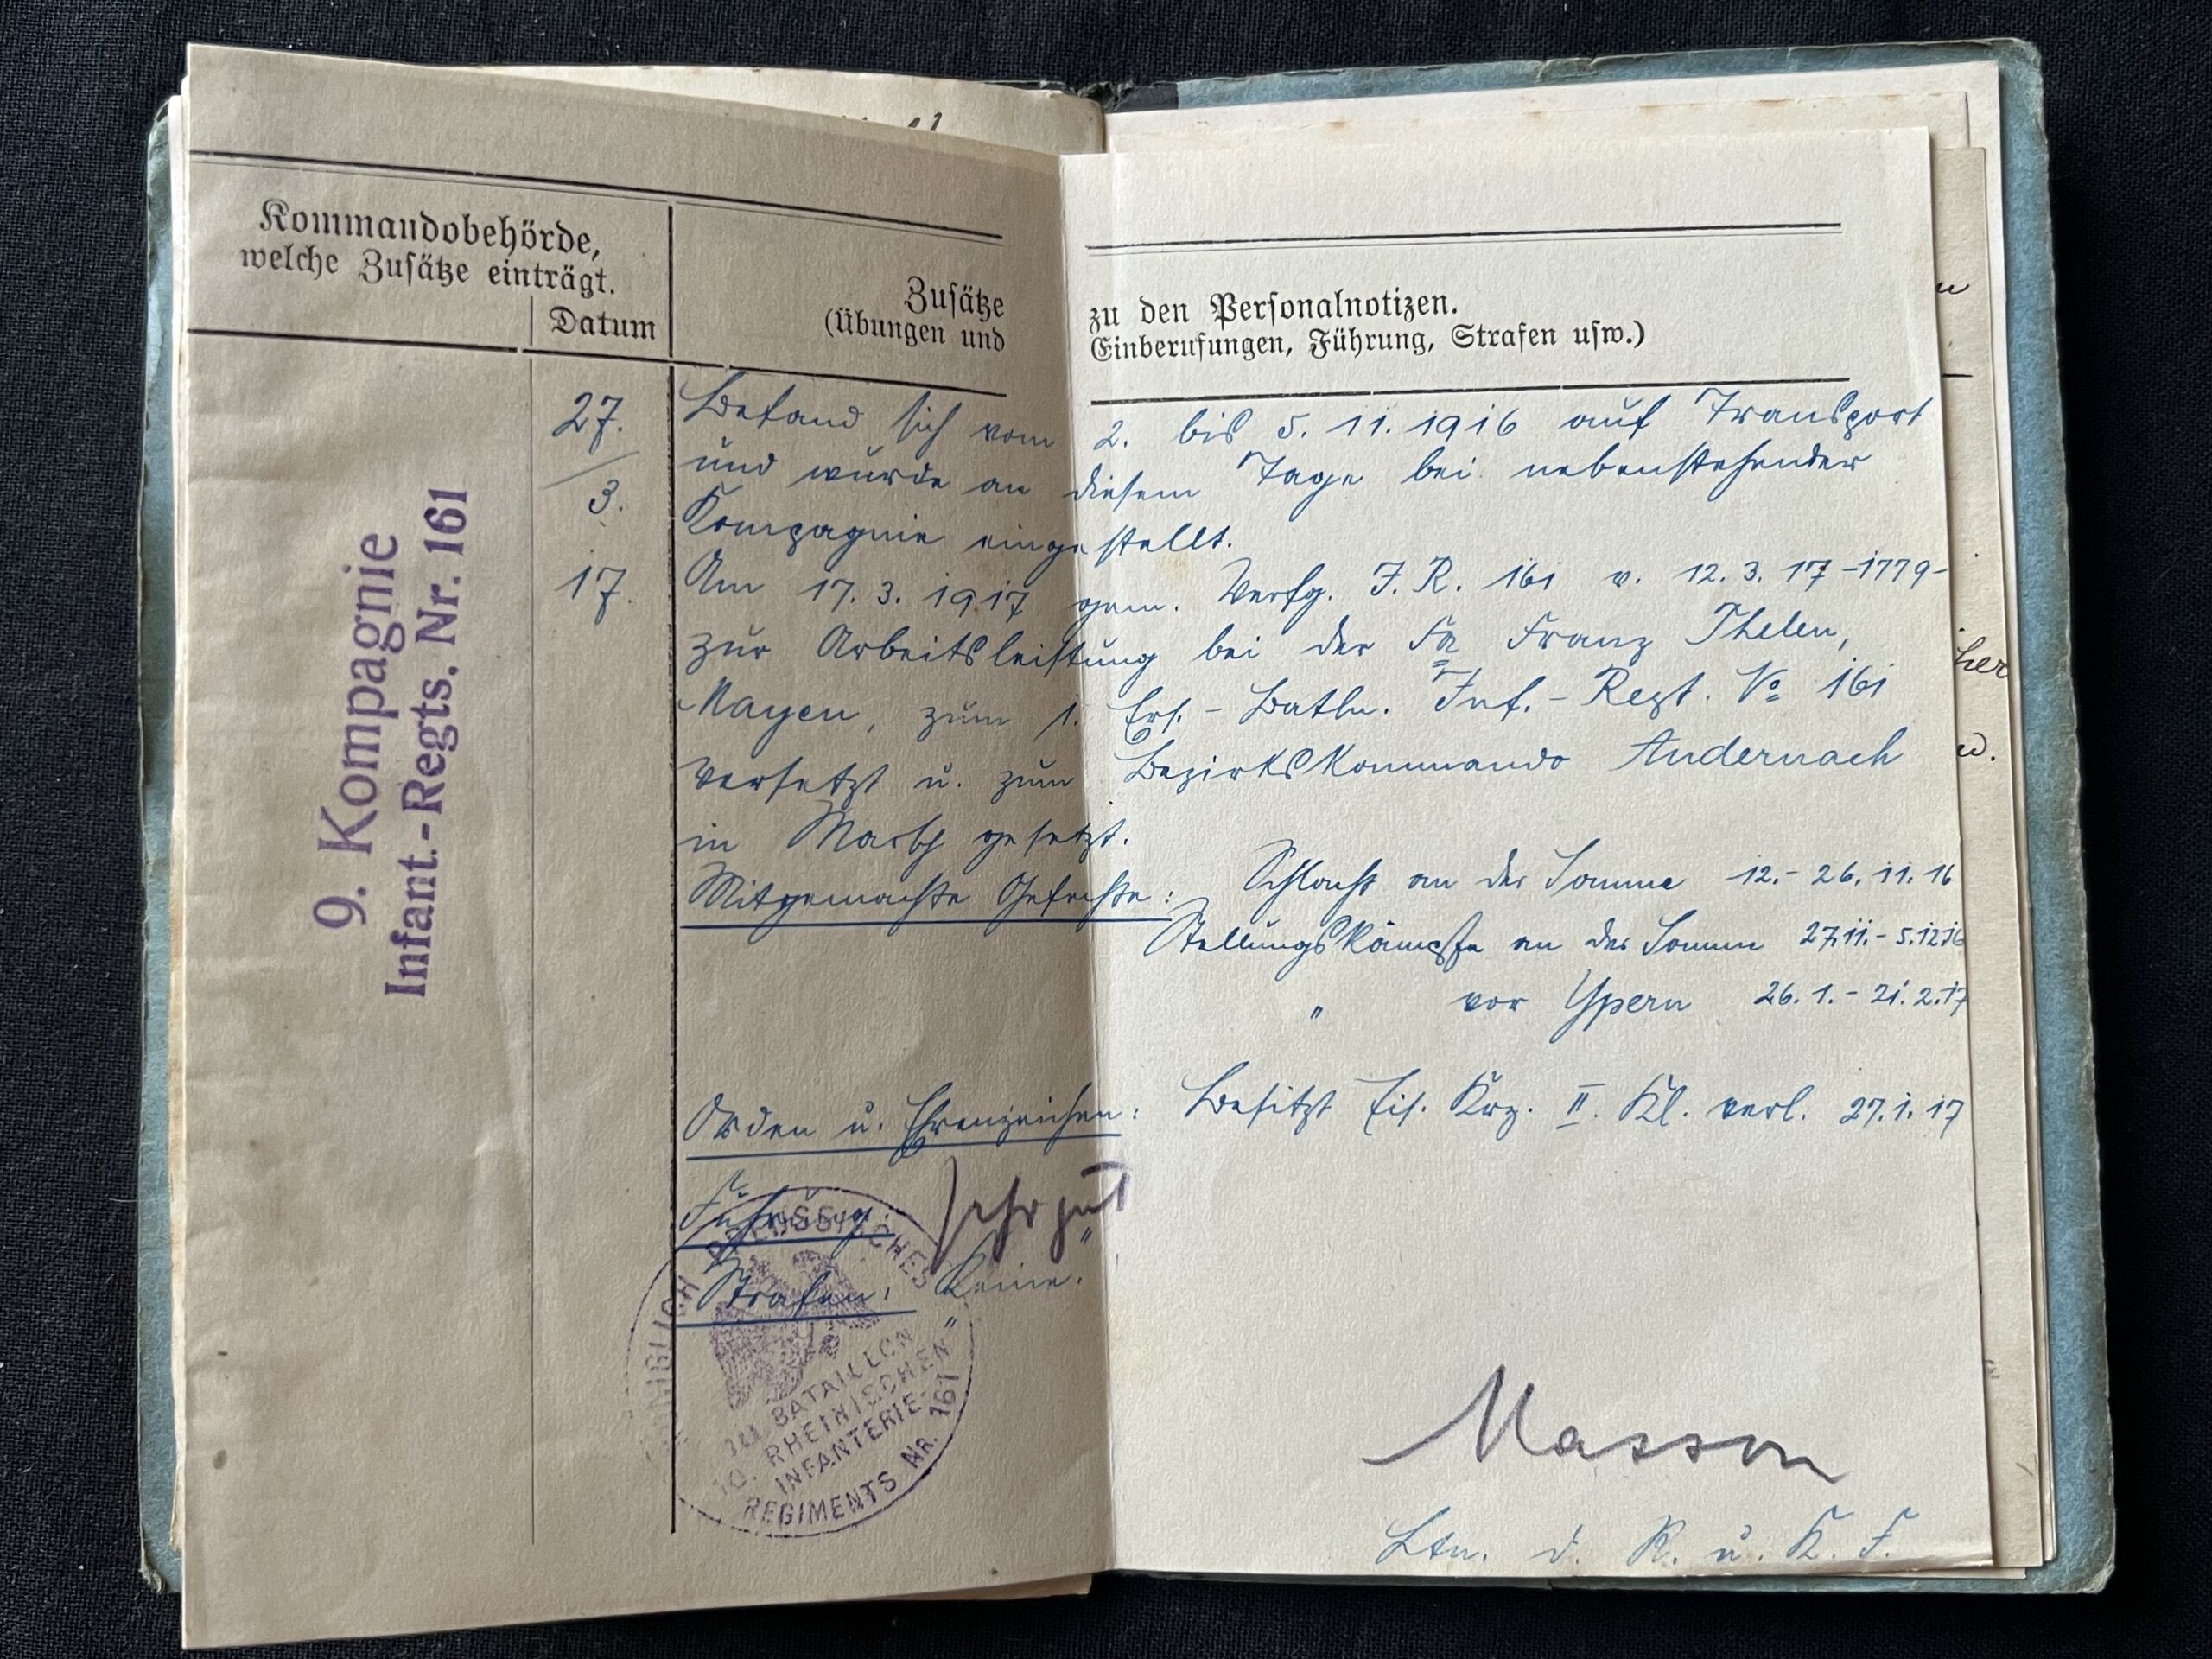 Kommandobehörde,
welche Zusätze einträgt.
Datum
Zusätze zu den Personalnotizen.
(Übungen und Einberufungen, Führung, Strafen usw.)
9. Kompagnie
Infant.-Regts. Nr. 161
27.
3.
17.
Befand sich vom 2. bis 5. 11. 1916 auf Transport
und wurde an diesem Tage bei nebenstehender
Kompagnie eingestellt.
Am 17. 3. 1917 gem. Verfg. J. R. 161 v. 12. 3. 17 -1779-
zur Arbeitsleistung bei der Fa Franz Thelen,
Mayen, zum 1. Ers.- Batln. Inf.- Regt. No 161
versetzt u. zum Bezirkskommando Andernach
in Marsch gesetzt.
Mitgemachte Gefechte: Schlacht an der Somme 12.- 26. 11. 16
Stellungskämpfe an der Somme 27.11.- 5.12.16
" vor Ypern 26. 1. - 21. 2. 17
Orden u. Ehrenzeichen: Besitzt Eis. Krz. II. Kl. verl. 27. 1. 17
Führung: sehr gut
Strafen: "Keine."
KÖNIGLICH PREUSSISCHES
III. BATAILLON
10. RHEINISCHEN
INFANTERIE-
REGIMENTS NR. 161
Masson
Ltn. d. R. u. K. F.
her